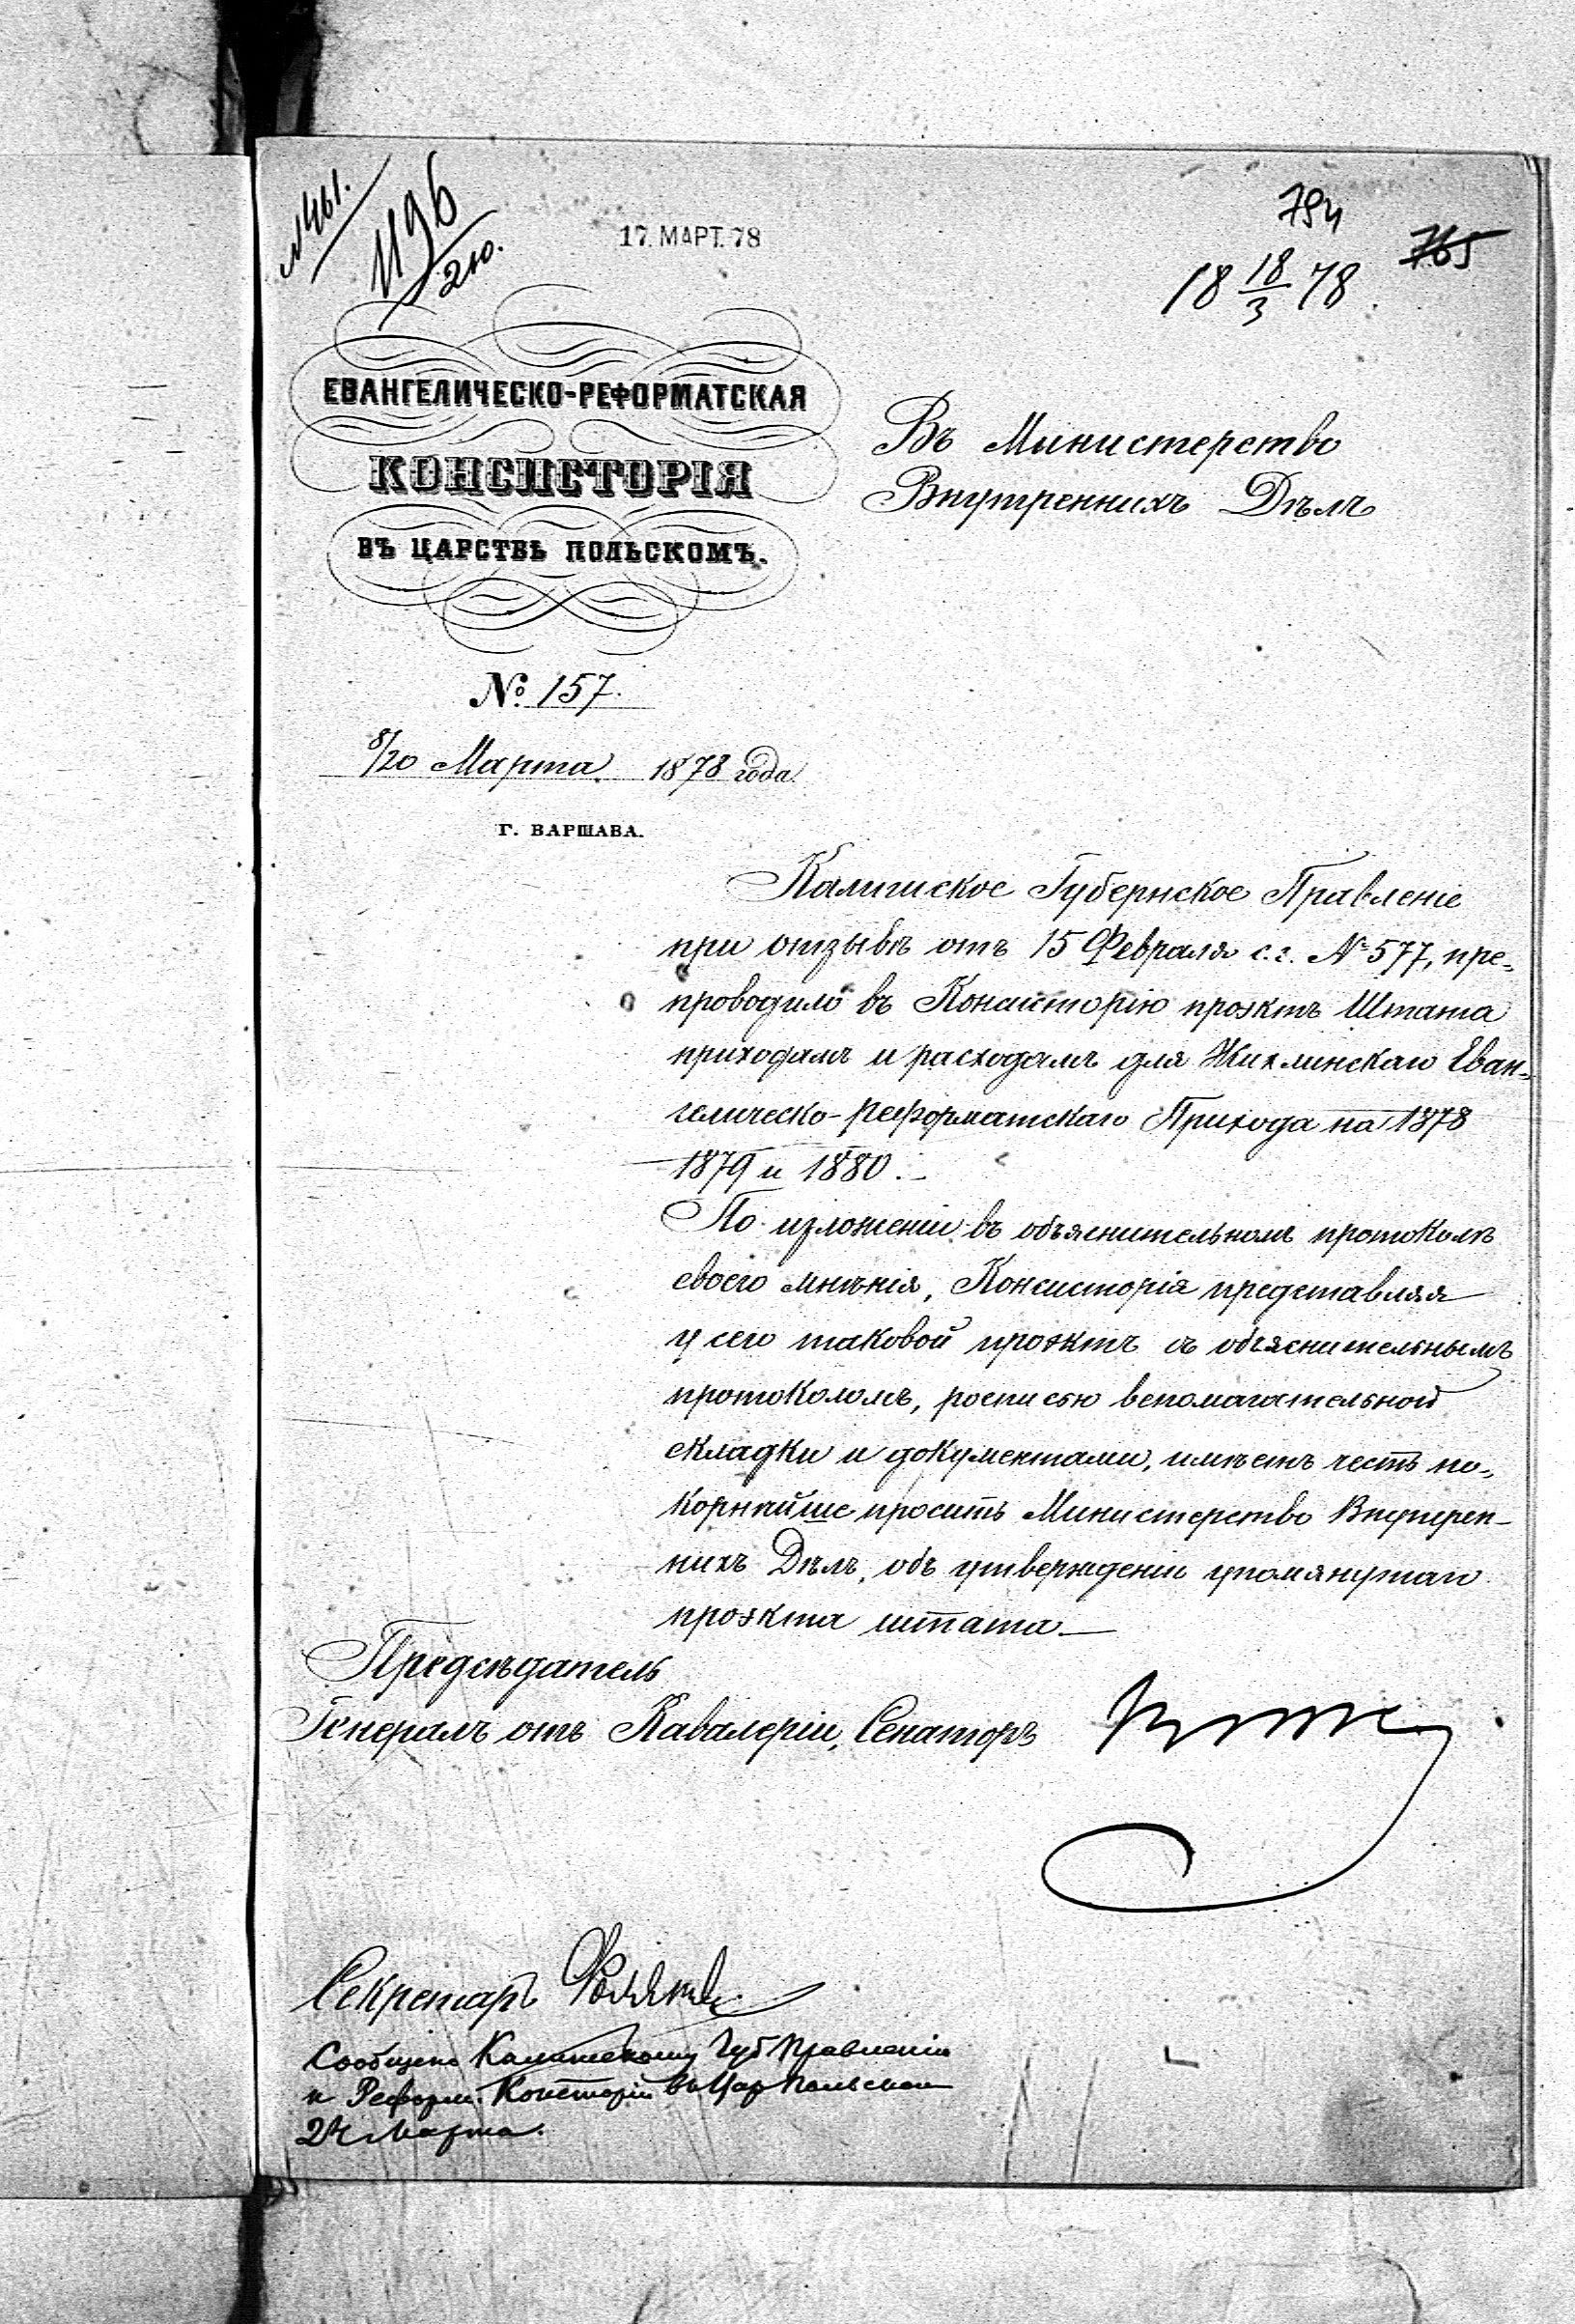 № 461.
1196
2 ю.
17. МАРТ. 78
794
765
18 18/3 78.
ЕВАНГЕЛИЧЕСКО-РЕФОРМАТСКАЯ
КОНСИСТОРІЯ
ВЪ ЦАРСТВѢ ПОЛЬСКОМЪ.
Въ Министерство
Внутреннихъ Дѣлъ
№ 157.
8/20 Марта 1878 года.
Г. ВАРШАВА.
Калишское Губернское Правленіе
при отзывѣ отъ 15 Февраля с. г. № 577, пре-
проводило въ Консисторію проэктъ Штата
приходамъ и расходамъ для Жихлинскаго Еван-
гелическо-Реформатскаго Прихода на 1878
1879 и 1880.
По изложеніи въ объяснительномъ протоколѣ
своего мнѣнія, Консисторія представляя
у сего таковой проэктъ съ объяснительнымъ
протоколомъ, росписью вспомагательной
складки и документами, имѣетъ честь по-
корнѣйше просить Министерство Внутрен-
нихъ Дѣлъ, объ утвержденіи упомянутаго
проэкта штата
Предсѣдатель
Генералъ отъ Кавалеріи, Сенаторъ
Секретарь
Сообщено Калишскому Губ Правленію
и Реформ. Консторіи въ Цар Польском
24 Марта.